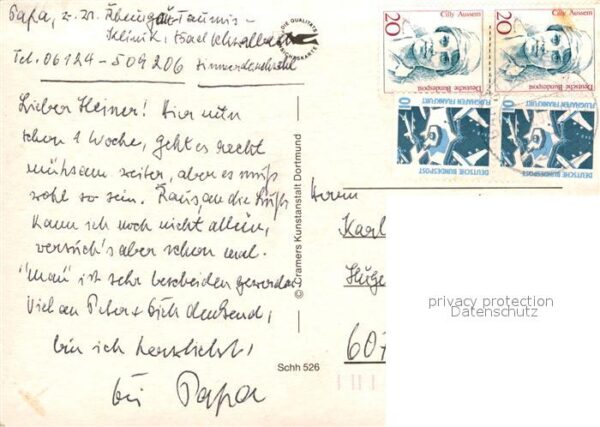 Papa, z. Zt. Rheingau-Taunus-
Klinik, Bad Schwalbach
Tel. 06124-509206 Zimmerdurchwahl
Lieber Heiner! Hier nun
schon 1 Woche, geht es recht
mühsam weiter, aber es muß
wohl so sein. Raus, an die Luft
kann ich noch nicht allein,
versuch's aber schon mal.
"man" ist sehr bescheiden geworden
Viel an Peter + Dich denkend,
bin ich herzlichst,
Dein Papa
DIE QUALITÄTS
© Cramers Kunstanstalt Dortmund
Schh 526
20
Cilly Aussem
Deutsche Bundespost
20
Cilly Aussem
Deutsche Bundespost
10
FLUGHAFEN FRANKFURT
DEUTSCHE BUNDESPOST
10
FLUGHAFEN FRANKFURT
DEUTSCHE BUNDESPOST
Herrn
Karl
Huge
607
privacy protection
Datenschutz